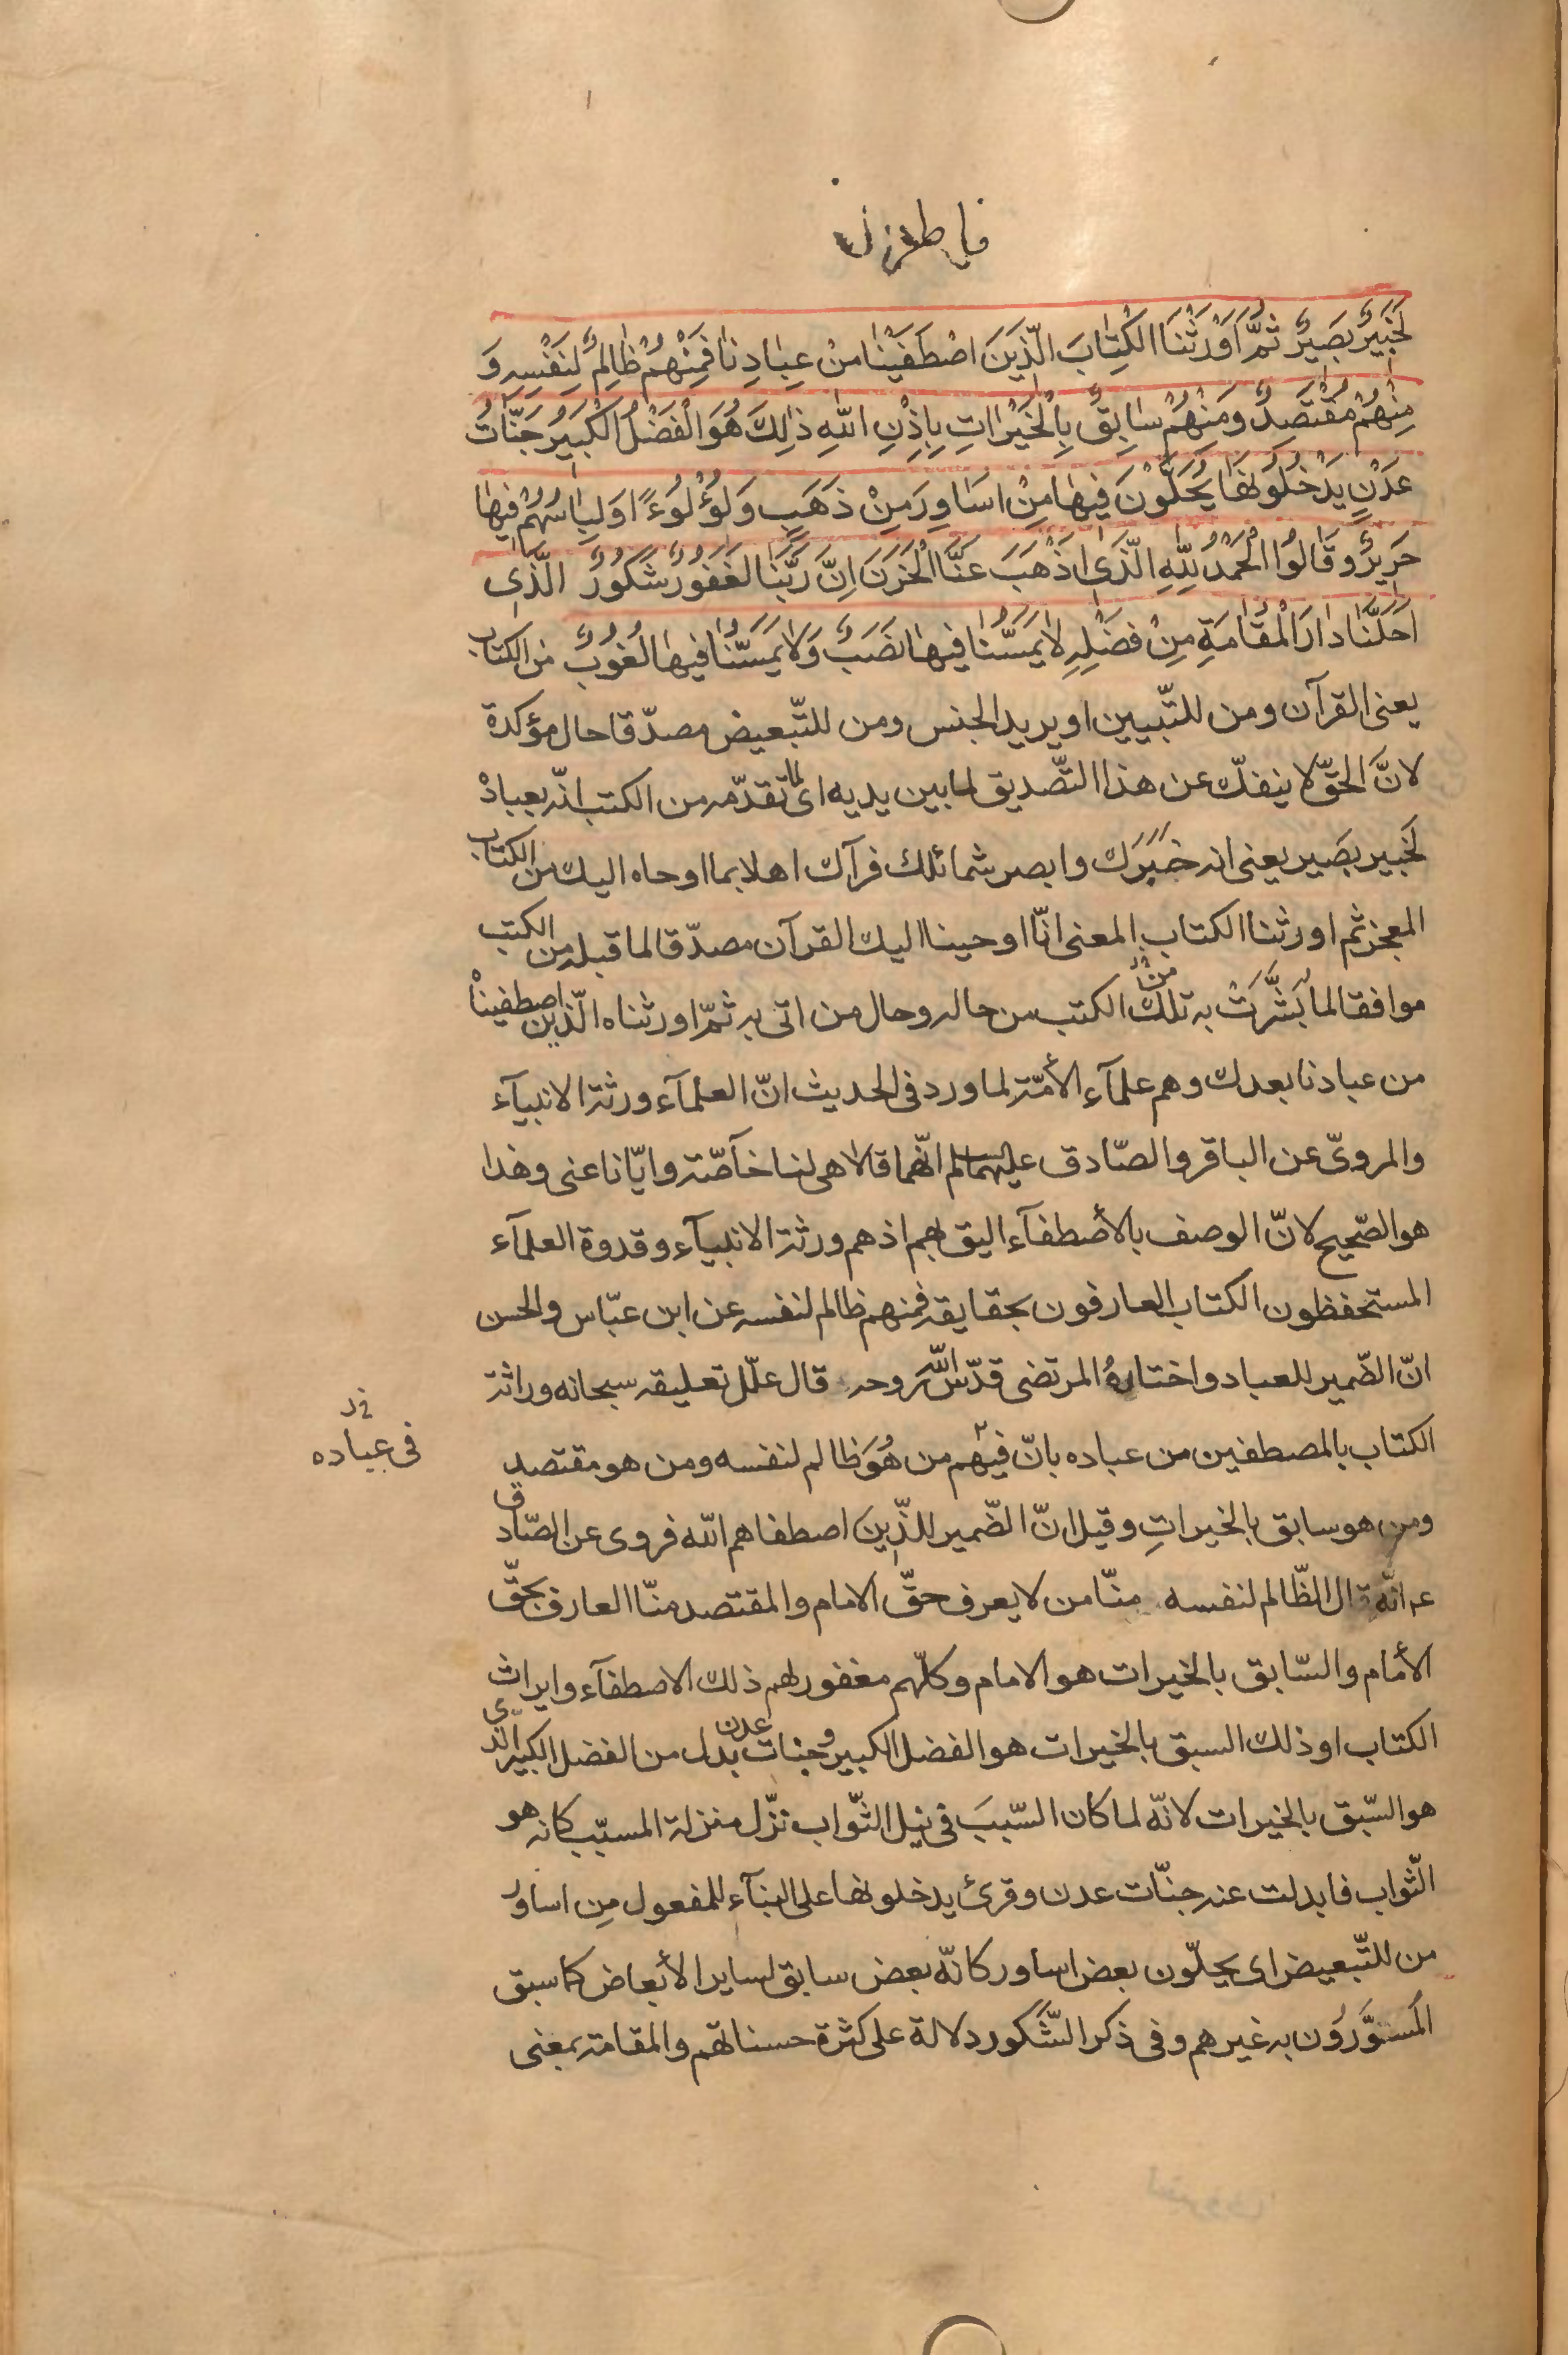 فاطر
لَخَبِيرٌ بَصِيرٌ ثُمَّ اَوْرَثْنَا الْكِتٰابَ الَّذِينَ اصْطَفَيْنٰا مِنْ عِبٰادِنٰا فَمِنْهُمْ ظٰالِمٌ لِنَفْسِهِ وَ
مِنْهُمْ مُقْتَصِدٌ وَمِنْهُمْ سٰابِقٌ بِالْخَيْرٰاتِ بِاِذْنِ اللّٰهِ ذٰلِكَ هُوَ الْفَضْلُ الْكَبِيرُ جَنّٰاتُ
عَدْنٍ يَدْخُلُونَهٰا يُحَلَّوْنَ فِيهٰا مِنْ اَسَاوِرَ مِنْ ذَهَبٍ وَلُؤْلُوءًا وَلِبٰاسُهُمْ فِيهٰا
حَرِيرٌ وَقَالُوا الْحَمْدُ لِلّٰهِ الَّذِى اَذْهَبَ عَنَّا الْحَزَنَ اِنَّ رَبَّنٰا لَغَفُورٌ شَكُورٌ الَّذِى
اَحَلَّنٰا دٰارَ الْمُقٰامَةِ مِنْ فَضْلِهِ لٰا يَمَسُّنٰا فِيهٰا نَصَبٌ وَلٰا يَمَسُّنٰا فِيهٰا لُغُوبٌ من الكتاب
يعنى القرآن ومن للتّبيين او يريد الجنس ومن للتّبعيض مصدّقا حال مؤكدة
لانَّ الحقّ لا ينفكّ عن هذا التّصديق لما بين يديه اى لما تقدّمه من الكتب انّه بعباده
لَخبير بصَير يعنى انه خبَرَك وابصر شمائلك فرآك اهلا بما اوحاه اليك من الكتاب
المعجز ثم اورثنا الكتاب المعنى انّا اوحينا اليك القرآن مصدّقا لما قبله من الكتب
موافقا لما بَشَّرَتْ به تلك الكتب من حاله وحال من اتى به ثمّ اورثناه الّذين اصطفينا
من عبادنا بعدك وهم علمآء الأمّة لما ورد فى الحديث انّ العلمآء ورثة الانبيآء
والمروىّ عن الباقر والصّادق عليهما السلم انّهما قالا هى لنا خآصّة وايّانا عنى وهذا
هو الصّحيح لانّ الوصف بالأصطفآء اليق بهم اذ هم ورثة الانبيآء وقدوة العلمآء
المستحفظون الكتاب العارفون بحقايقه فمنهم ظالم لنفسه عن ابن عبّاس والحسن
انّ الضّمير للعباد واختارهُ المرتضى قدّس اللّه روحه قال علّل تعليقه سبحانه وراثة
الكتاب بالمصطفين من عباده بانّ فيهم من هُوَ ظالم لنفسه ومن هو مقتصد
فى عباده
ومن هو سابق بالخيراتِ وقيل انّ الضّمير للّذِينَ اصطفاهم اللّه فروى عن الصّادق
عم انّه قال الظّالم لنفسه منّا من لا يعرف حقّ الامام والمقتصد منّا العارف بحقّ
الأمام والسّابق بالخيرات هو الامام وكلّهم مغفور لهم ذلك الاصطفآء وايراث
الكتاب او ذلك السبق بالخيرات هو الفضل الكبير وجنات عدن بدل من الفضل الكبير الّذى
هو السّبق بالخيرات لانّه لما كان السّببَ فى نيل الثّواب نزّل منزلة المسبّب كانه هو
الثّواب فابدلت عنه جنّات عدن وقرئ يدخلونها على البنآء للمفعول مِن اساور
من للتّبعيض اى يحلّون بعض اساور كانّه بعض سابق لساير الأبعاض كما سبق
المُسَوَّرُون به غيرهم وفى ذكر الشَّكور دلالة على كثرة حسناتهم والمقامة بمعنى